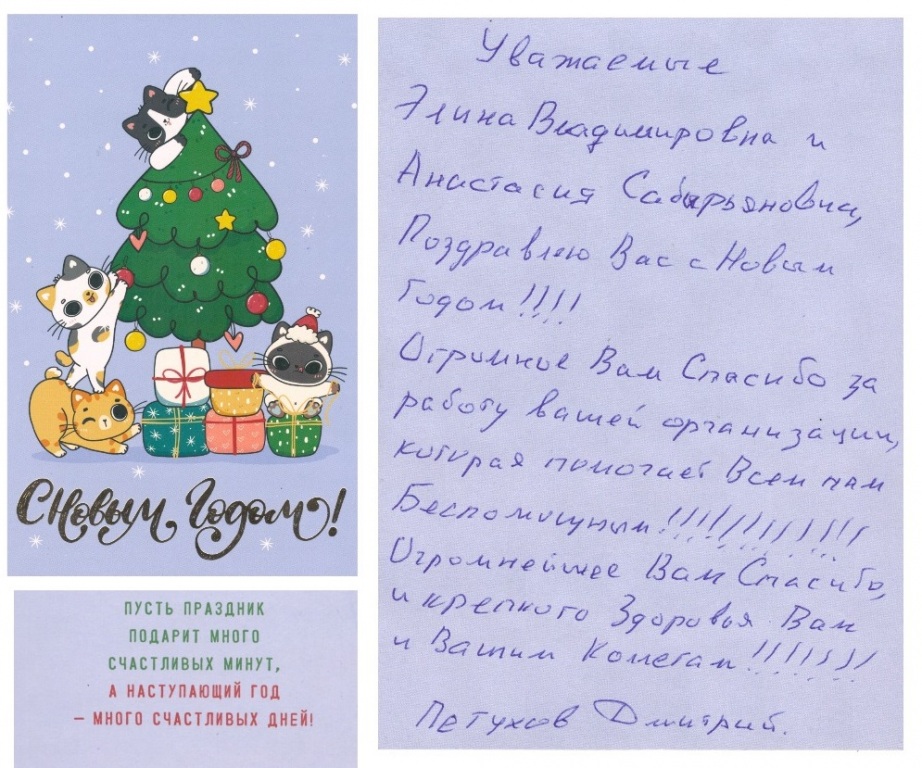 С Новым Годом!
ПУСТЬ ПРАЗДНИК
ПОДАРИТ МНОГО
СЧАСТЛИВЫХ МИНУТ,
А НАСТУПАЮЩИЙ ГОД
– МНОГО СЧАСТЛИВЫХ ДНЕЙ!
Уважаемые
Элина Владимировна и
Анастасия Сабырьяновна,
Поздравляю Вас с Новым
Годом!!!!
Огромное Вам Спасибо за
работу вашей организации,
которая помогает Всем нам
Беспомощным!!!!!!!!!!!!
Огромнейшее Вам Спасибо,
и крепкого Здоровья Вам
и Вашим Колегам!!!!!!!
Петухов Дмитрий.